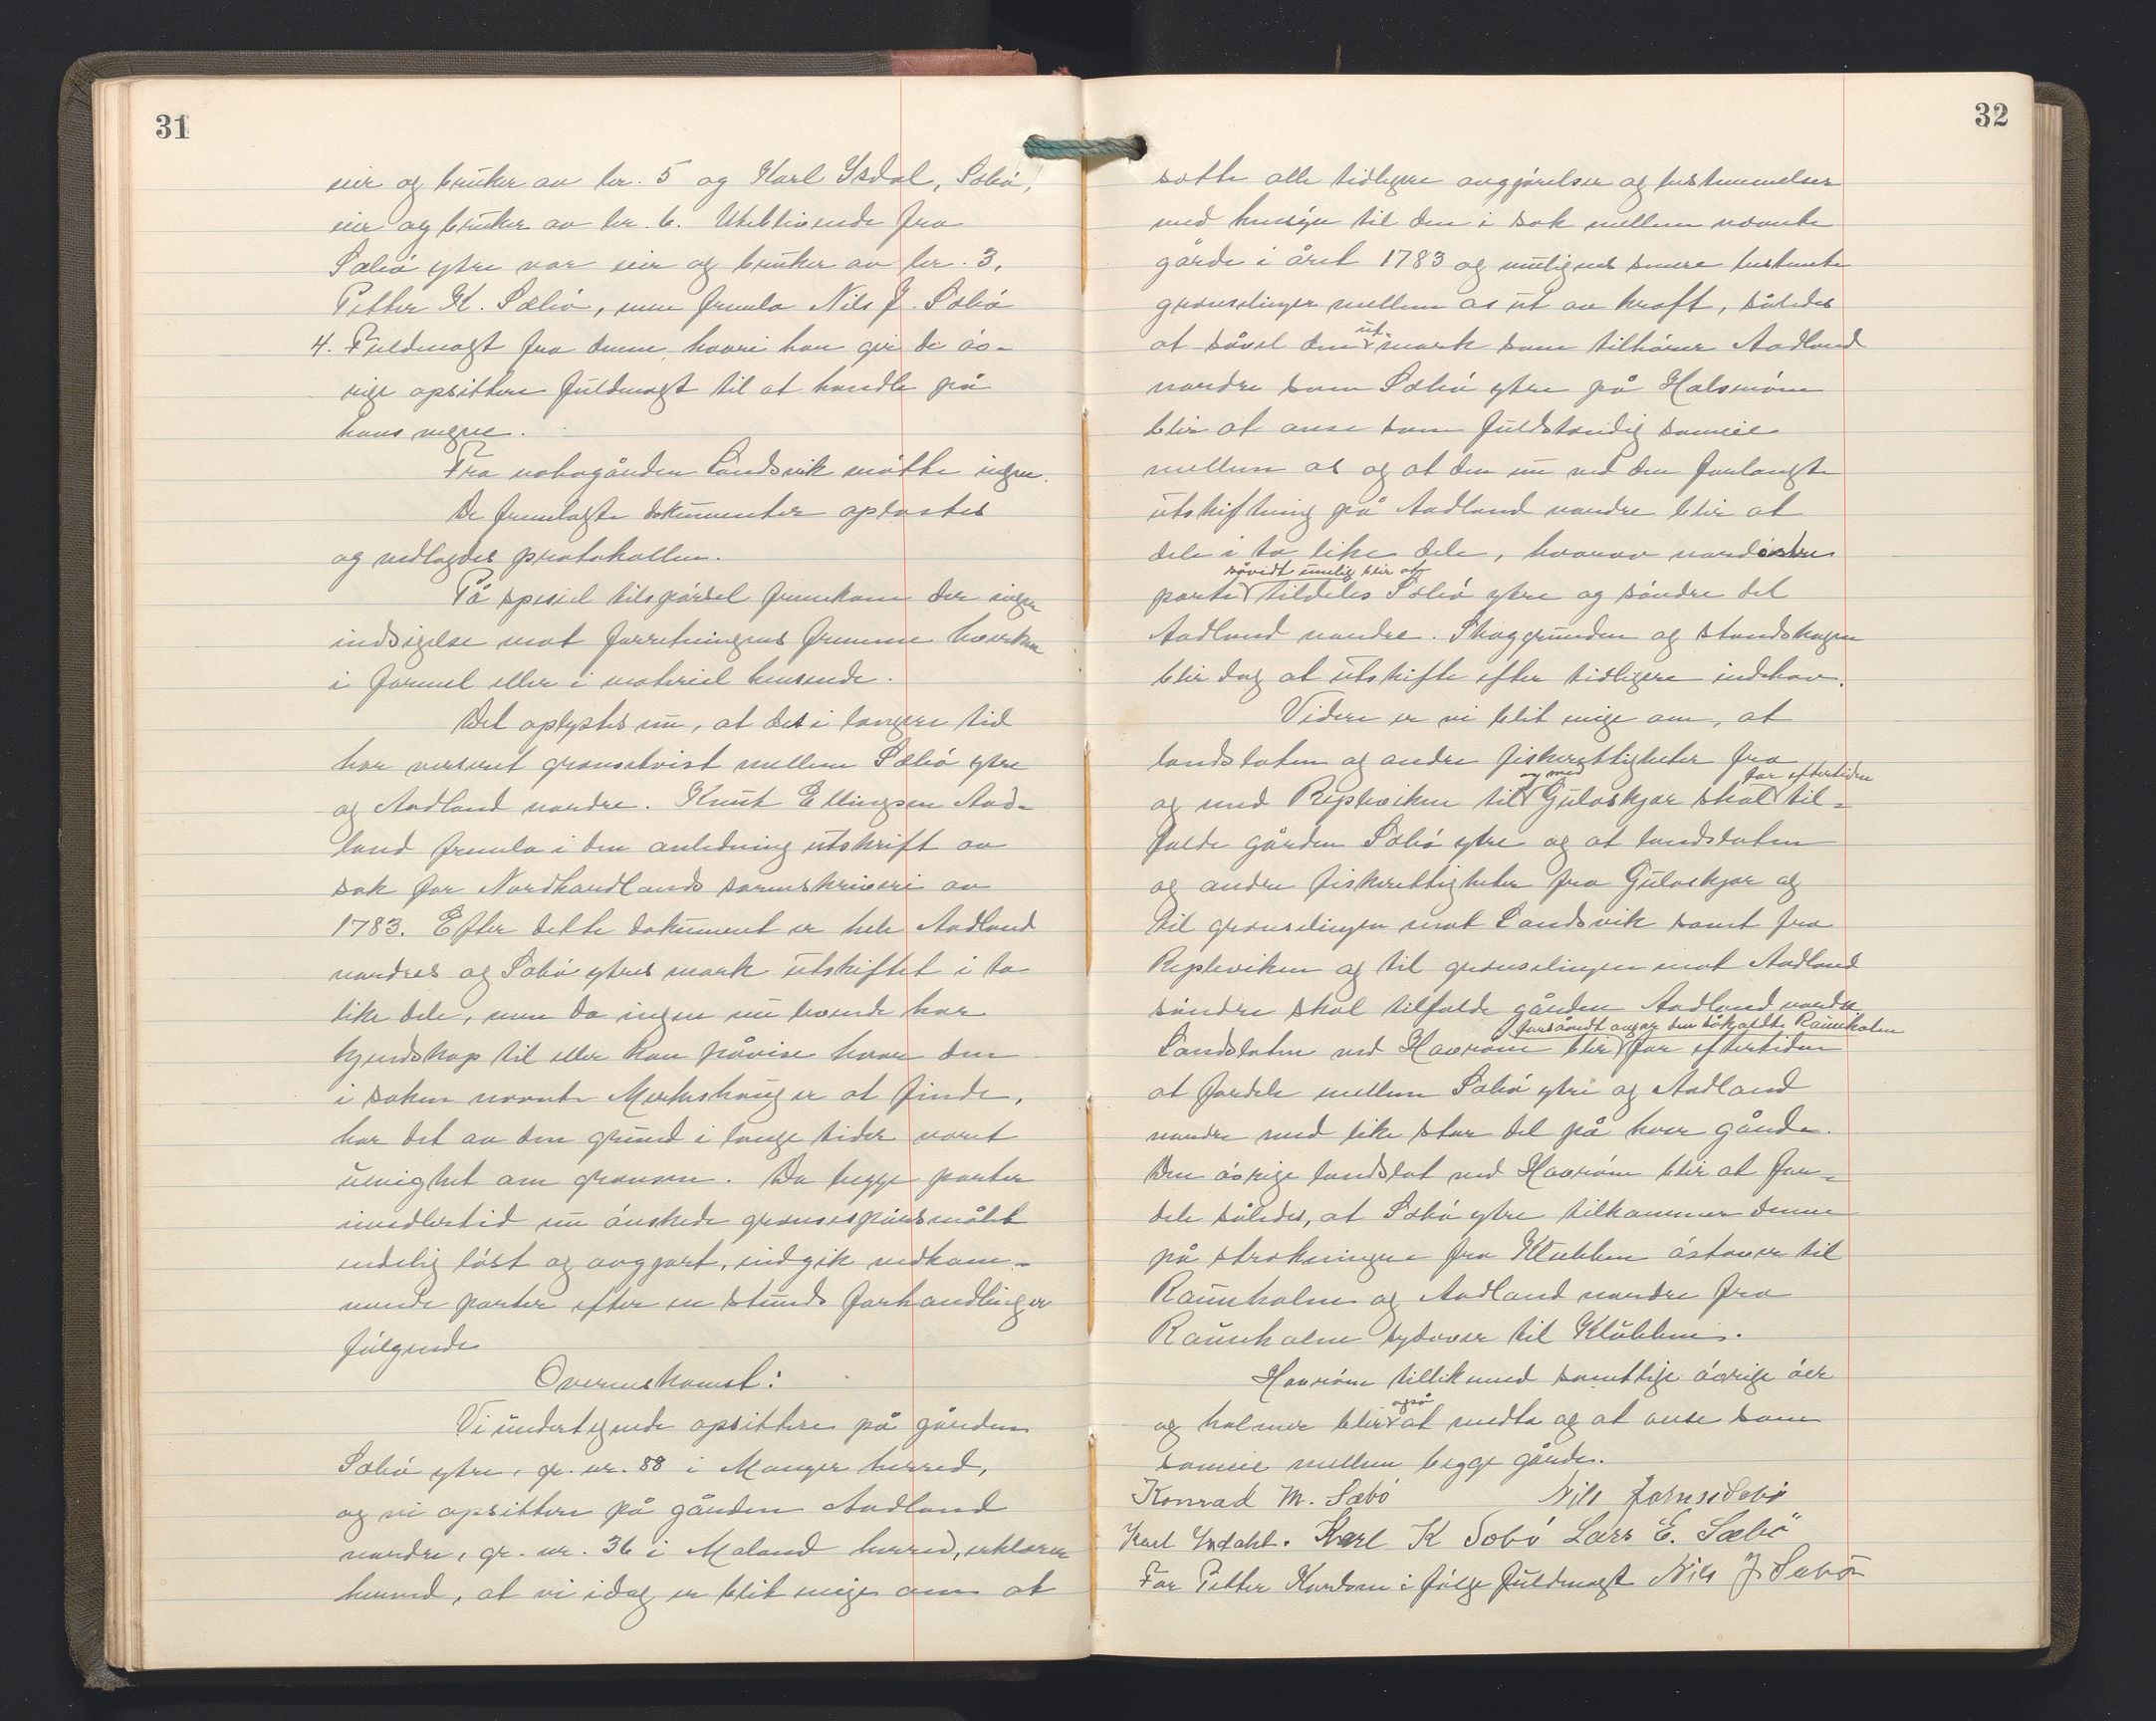 31
eier og bruker av br. 5 og Karl Ysdal, Sæbö,
eier og bruker av br. 6. Uteblivende fra
Sæbö ytre var eier og bruker av br. 3,
Petter K. Sæbö, men fremla Nils J. Sæbö
4. Fuldmagt fra denne, hvori han gir de öv-
rige opsittere fuldmagt til at handle på
hans vegne.
Fra nabogården Landsvik mötte ingen.
De fremlagte dokumenter oplæstes
og vedlagdes protokollen.
På speciel tilspörsel fremkom der ingen
indsigelse mot forretningens fremme hverken
i formel eller i materiel henseende.
Det oplystes nu, at det i længere tid
har versert grænsetvist mellem Sæbö ytre
og Aadland nordre. Knut Ellingsen Aad-
land fremla i den anledning utskrift av
sak for Nordhordlands sorenskriveri av
1783. Efter dette dokument er hele Aadland
nordres og Sæbö ytres mark utskiftet i to
like dele, men da ingen nu levende har
kjendskap til eller kan påvise hvor den
i saken nævnte Merkeshaug er at finde,
har det av den grund i lange tider været
uenighet om grænsen. Da begge parter
imidlertid nu önskede grænsespörsmålet
endelig löst og avgjort, indgik vedkom-
mende parter efter en stunds forhandlinger
fölgende
Overenskomst:
Vi undertegnede opsittere på gården
Sæbö ytre, gr. nr. 88 i Manger herred,
og vi opsittere på gården Aadland
nordre, gr. nr. 36 i Mæland herred, erklærer
herved, at vi idag er blit enige om at
32
sætte alle tidligere avgjörelser og bestemmelser
med hensyn til den i sak mellem nævnte
gårde i året 1783 og muligens senere bestemte
grænselinjer mellem os ut av kraft, således
at såvel den ut-mark som tilhörer Aadland
nordre som Sæbö ytre på Holsenöen
blir at anse som fuldstændig sameie
mellem os og at den nu ved den forlangte
utskiftning på Aadland nordre blir at
dele i to like dele, hvorav nordöstre
parti såvidt mulig blir at tildeles Sæbö ytre og söndre del
Aadland nordre. Skoggrunden og standskogen
blir dog at utskifte efter tidligere indehav.
Videre er vi blit enige om, at
landslotten og andre fiskerettigheter fra
og med Repleviken til og med Guloskjær skal for eftertiden til-
falde gården Sæbö ytre og at landslotten
og andre fiskerettigheter fra Guloskjær og
til grænselinjen mot Landsvik samt fra
Repleviken og til grænselinjen mot Aadland
söndre skal tilfalde gården Aadland nordre
Landslotten ved Havröen blir forsåvidt angår den såkaldte Rauneholm for eftertiden
at fordele mellem Sæbö ytre og Aadland
nordre med like stor del på hver gård.
Den övrige landslot ved Havröen blir at for-
dele således, at Sæbö ytre tilkommer denne
på strækningen fra Klubben östover til
Rauneholm og Aadland nordre fra
Rauneholm sydover til Klubben.
Havröen tillikemed samtlige övrige öer
og holmer blir også at medta og at anse som
sameie mellem begge gårde.
Konrad M. Sæbö Nils Johnsi Sebö
Karl Ysdahl. Karl K Sæbö Lars E. Sæbö
For Petter Knudsen i fölge fuldmagt Nils J Sæbö